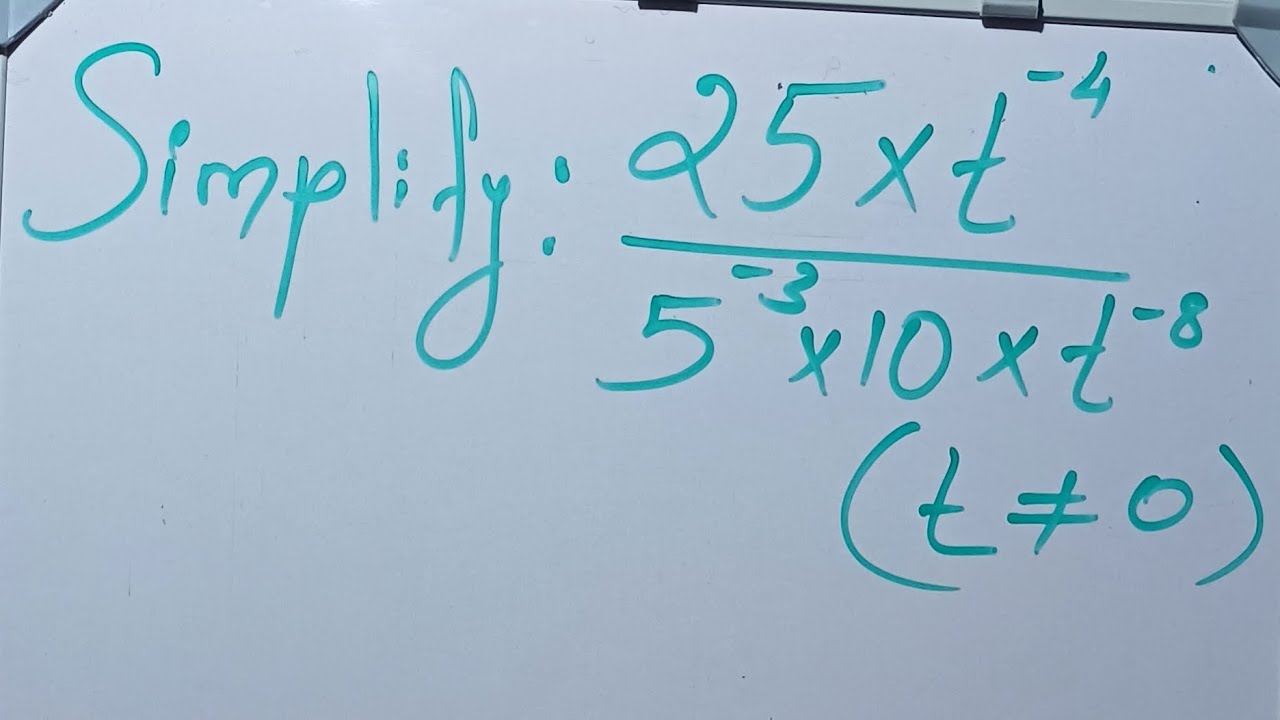 Simplify: 25 × t⁻⁴
5⁻³ × 10 × t⁻⁸
(t ≠ 0)